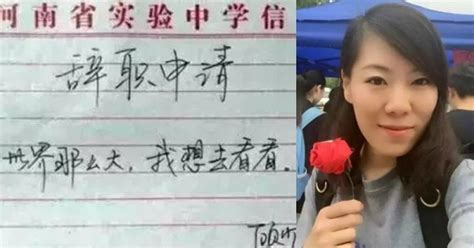 河南省实验中学信
辞职申请
世界那么大，我想去看看。